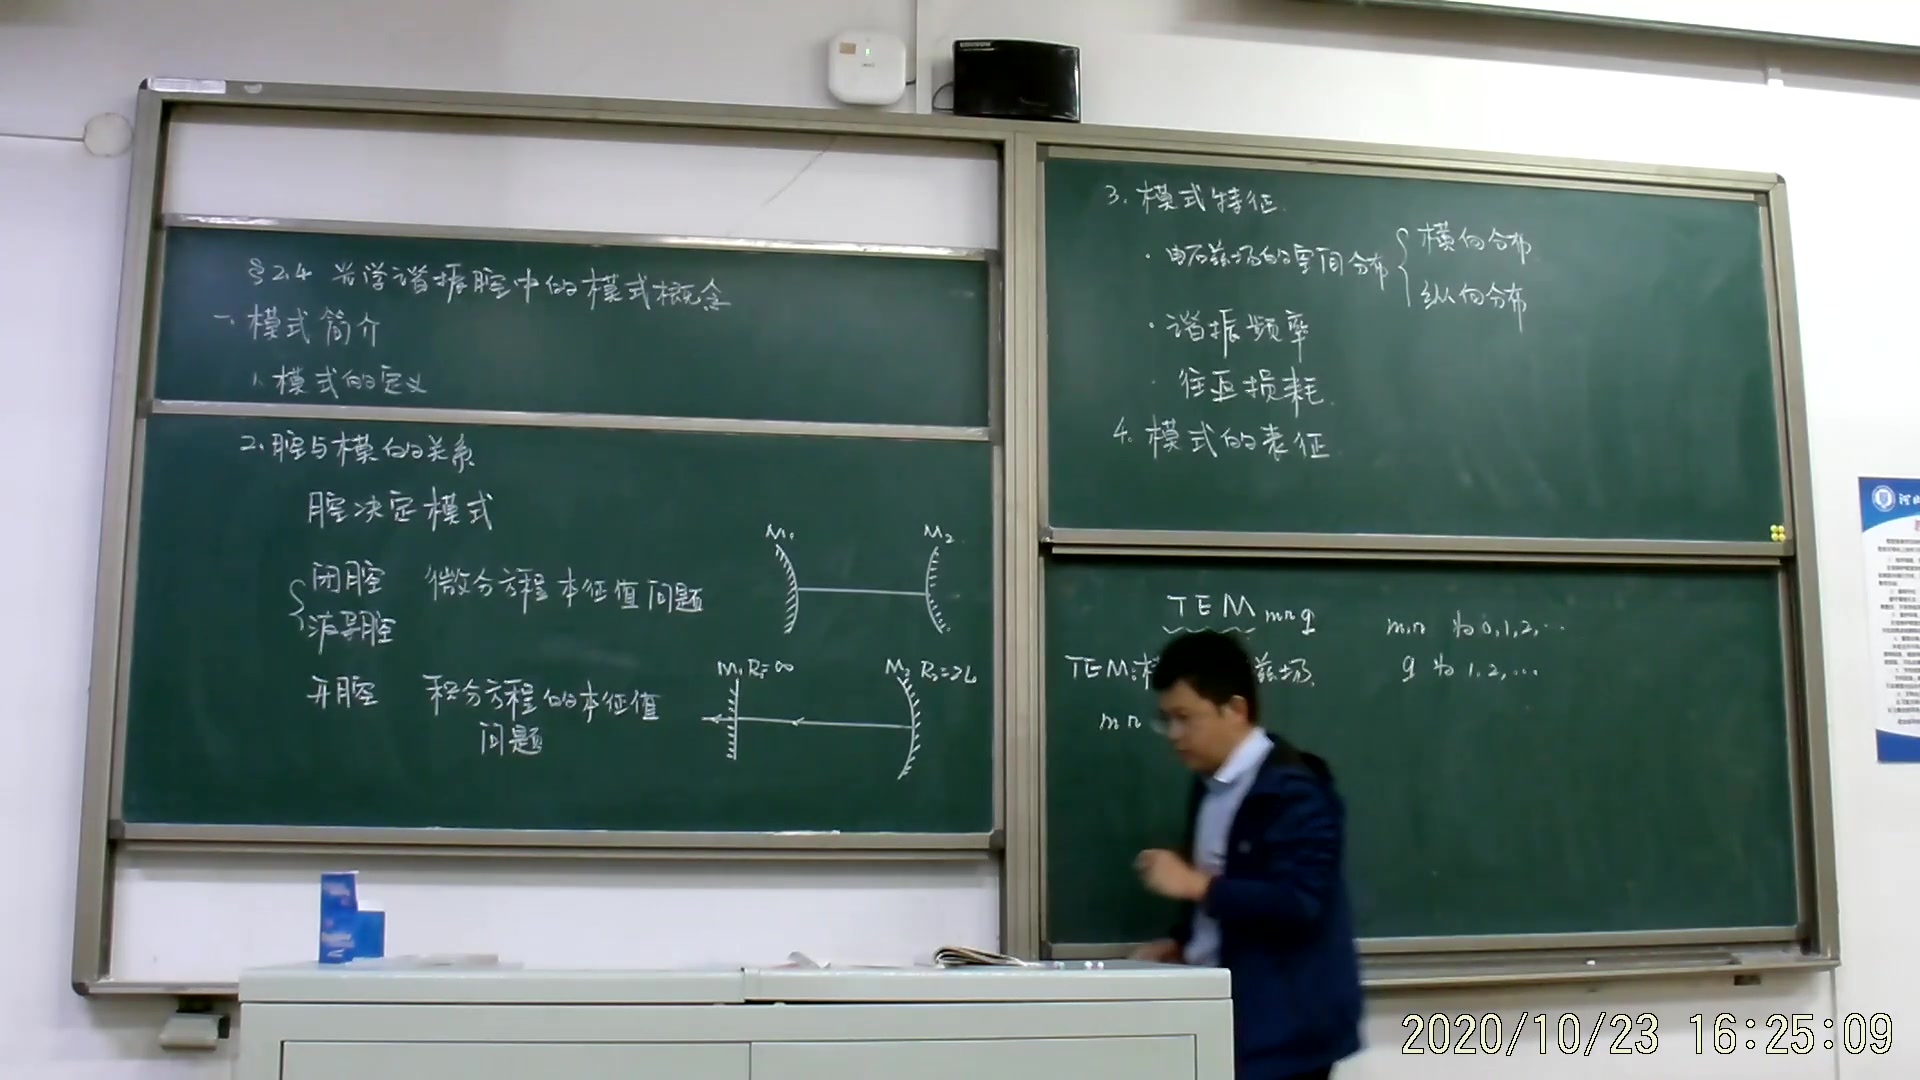 §2.4 光学谐振腔中的模式概念
一、模式简介
1、模式的定义
2、腔与模的关系
腔决定模式
闭腔 微分方程本征值问题
波导腔
开腔 积分方程的本征值
问题
M₁ M₂
M₁ R₁=∞ M₂ R₂=2L
3. 模式特征.
· 电磁场的空间分布 { 横向分布
纵向分布
· 谐振频率
· 往返损耗.
4. 模式的表征
TEM mnq m,n 为 0,1,2,…
TEM: 磁场. q 为 1,2,…
m n
2020/10/23 16:25:09